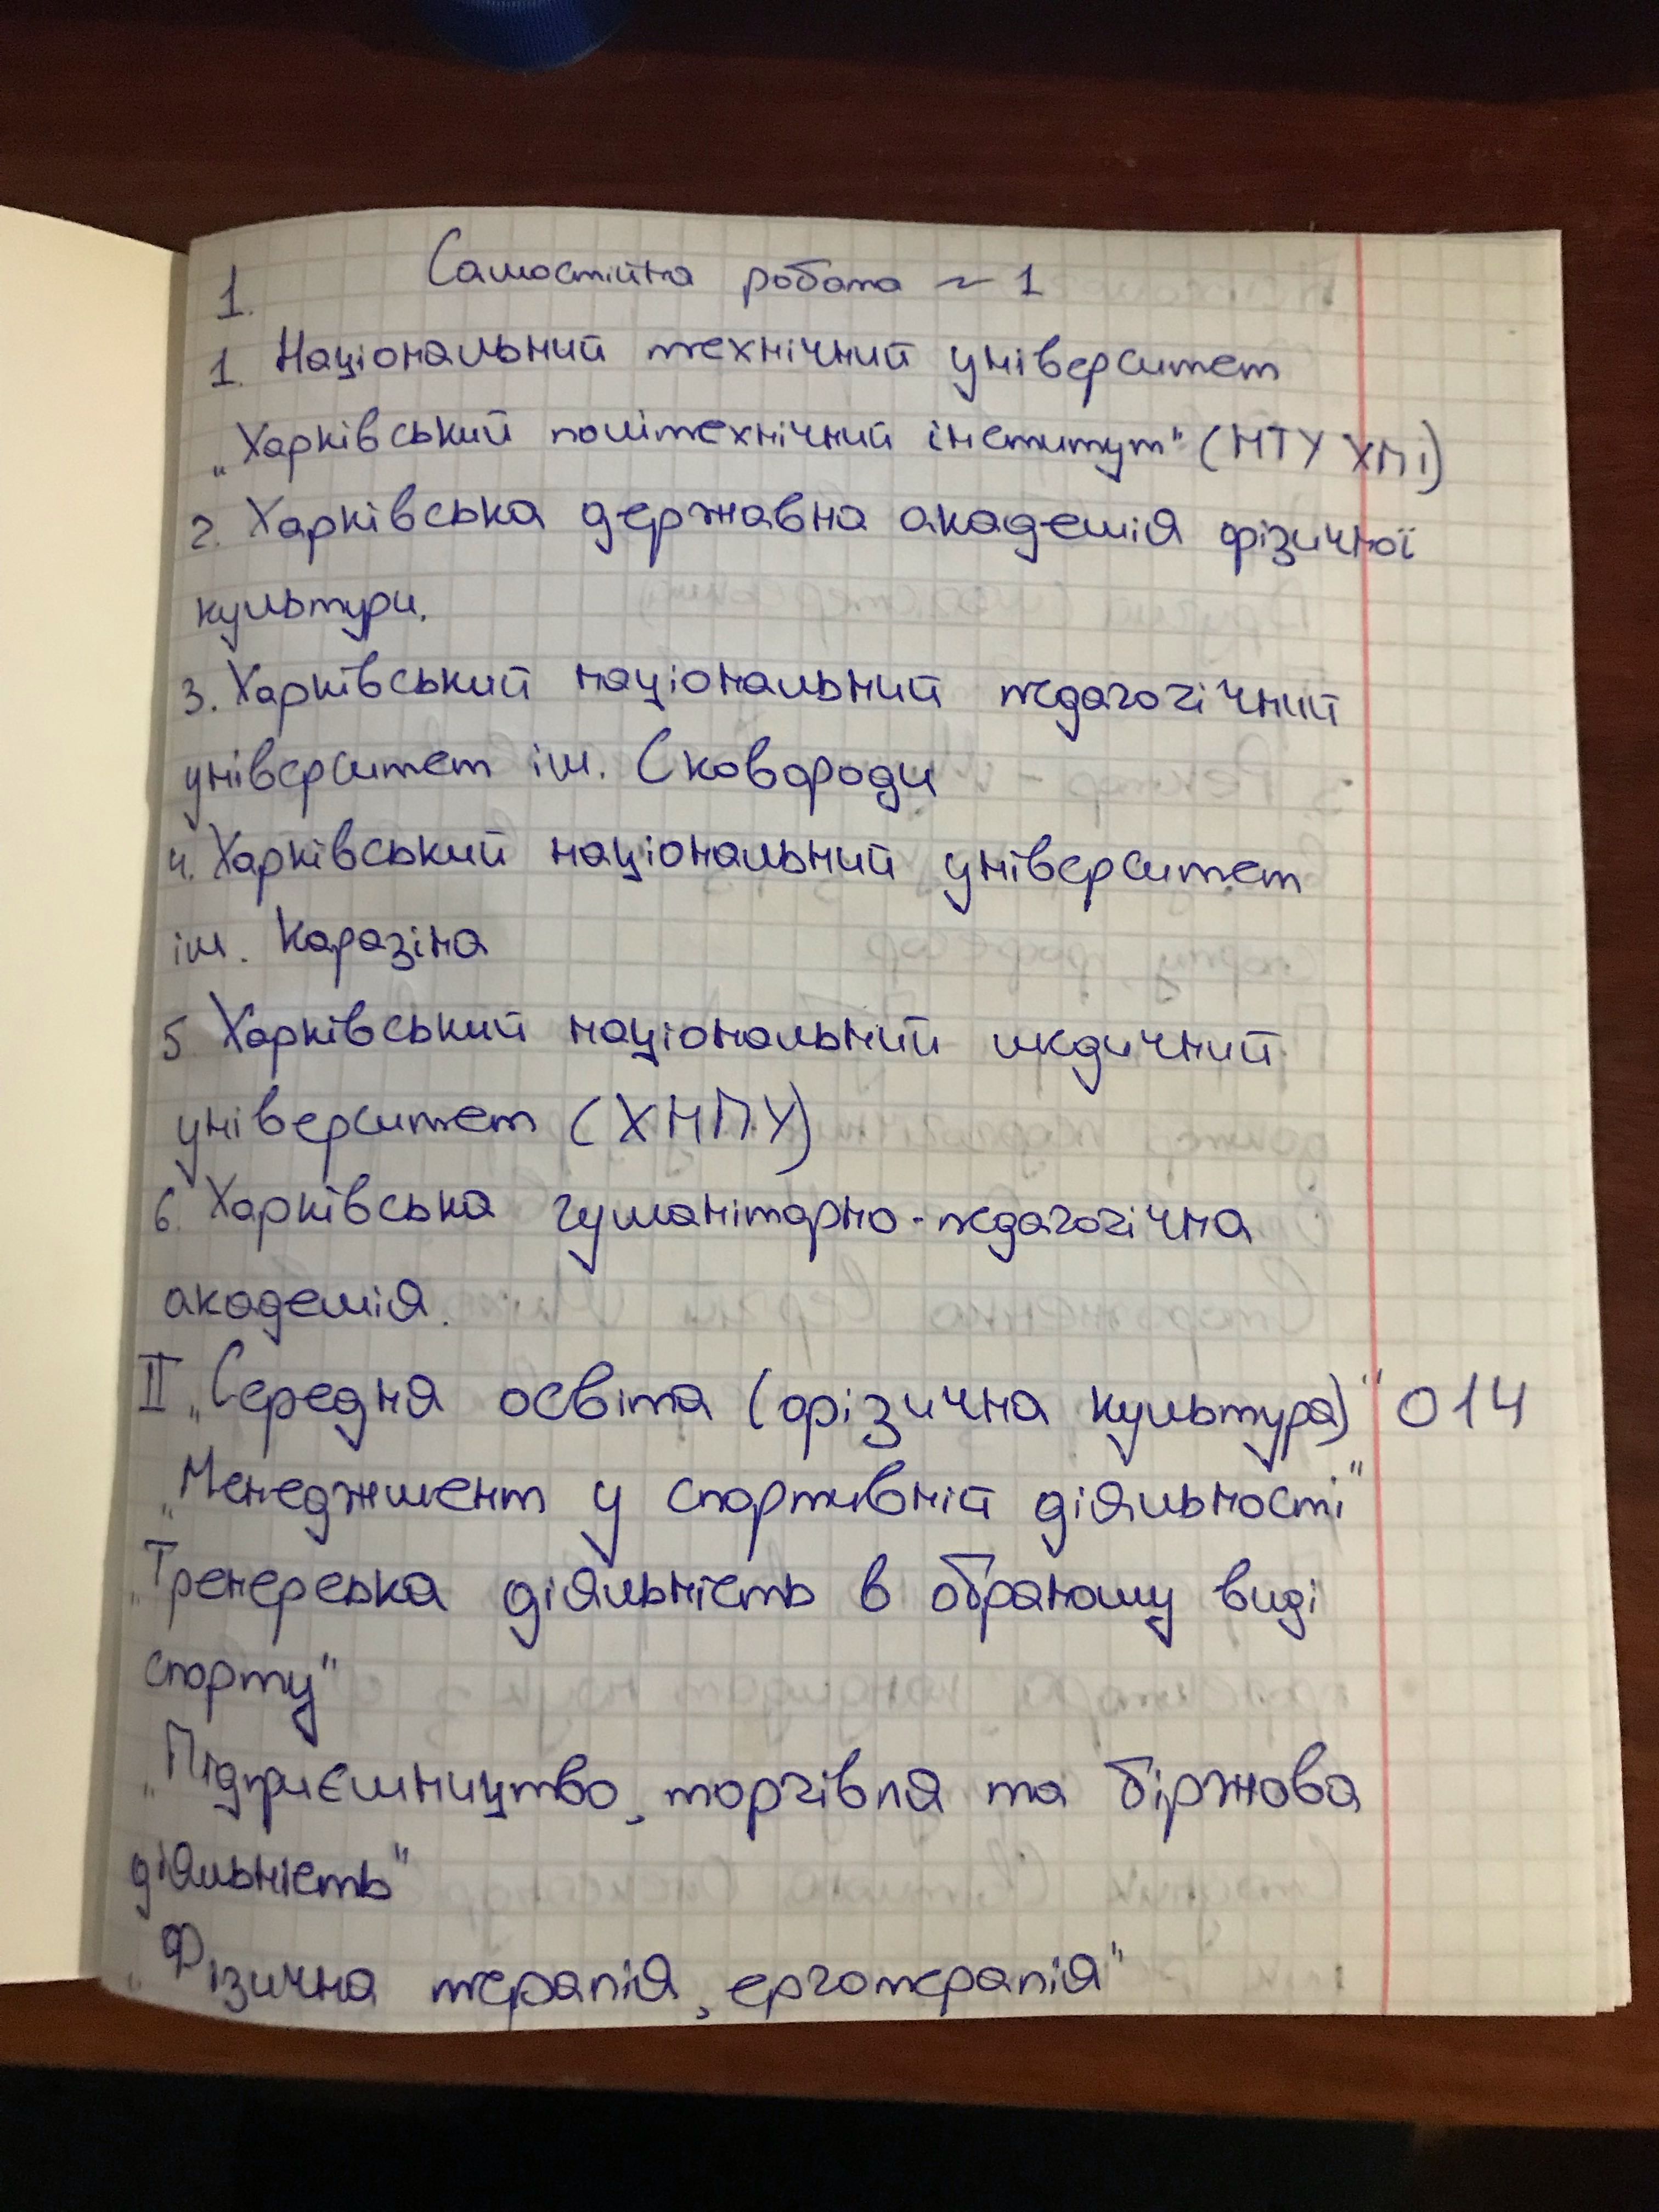 Самостійна робота ~ 1
1.
1. Національний технічний університет
„Харківський політехнічний інститут" (НТУ ХПІ)
2. Харківська державна академія фізичної
культури.
3. Харківський національний педагогічний
університет ім. Сковороди
4. Харківський національний університет
ім. Каразіна
5 Харківський національний медичний
університет (ХНПУ)
6. Харківська гуманітарно-педагогічна
академія.
II „Середня освіта (фізична культура)" 014
„Менеджмент у спортивній діяльності"
„Тренерська діяльність в обраному виді
спорту"
„Підприємництво, торгівля та біржова
діяльність"
„Фізична терапія, ерготерапія"